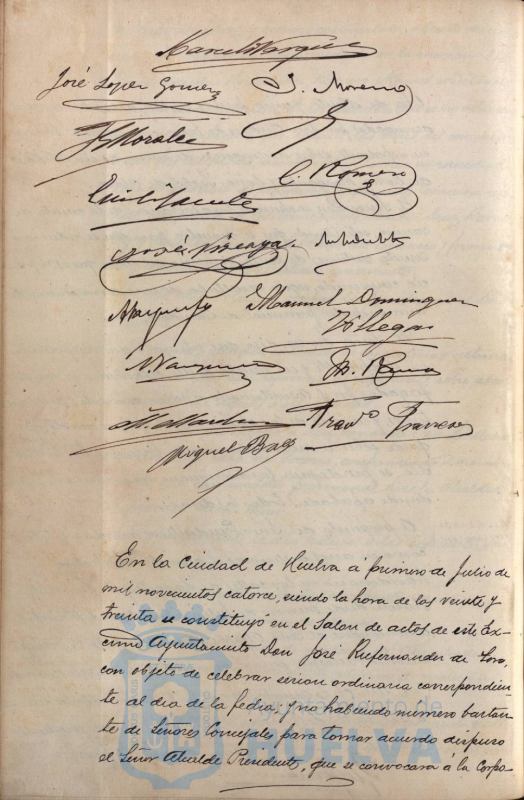 José Lopez Gomez
J. Moreno
F. Morales
C. Romero
José Vizcaya.
Manuel Dominguez
Villegas
N. Vazquez
Franco Travieso
Miguel Baez
En la Ciudad de Huelva á primero de Julio de
mil novecientos catorce, siendo la hora de las veinte y
treinta se constituyó en el Salon de actos de este Ex-
cmo Ayuntamiento Don José Rufernandez de
con objeto de celebrar sesion ordinaria correspondien-
te al dia de la fecha; y no habiendo número bastan-
te de Señores Concejales para tomar acuerdo dispuso
el Señor Alcalde Presidente, que se convocará á la Corpo-
Ayuntamiento de
HUELVA